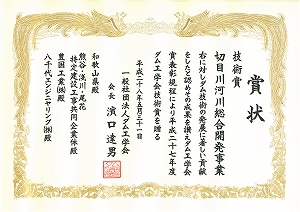 賞状
技術賞
切目川河川総合開発事業
右に対しダム技術の発展に著しい貢献
をしたと認めその成果を讃えダム工学会
賞表彰規程により平成二十七年度
ダム工学会技術賞を贈る
平成二十八年五月二十一日
一般社団法人ダム工学会
会長 濱口達男
和歌山県殿
熊谷・浅川・尾花
特定建設工事共同企業体殿
豊国工業㈱殿
八千代エンジニヤリング㈱殿